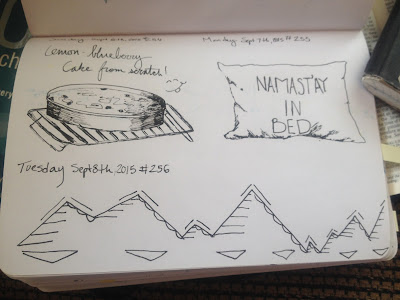 Monday Sept 7th, 2015 # 255
Lemon-blueberry
Cake from scratch!
NAMAST'AY
IN
BED
Tuesday Sept 8th, 2015 # 256